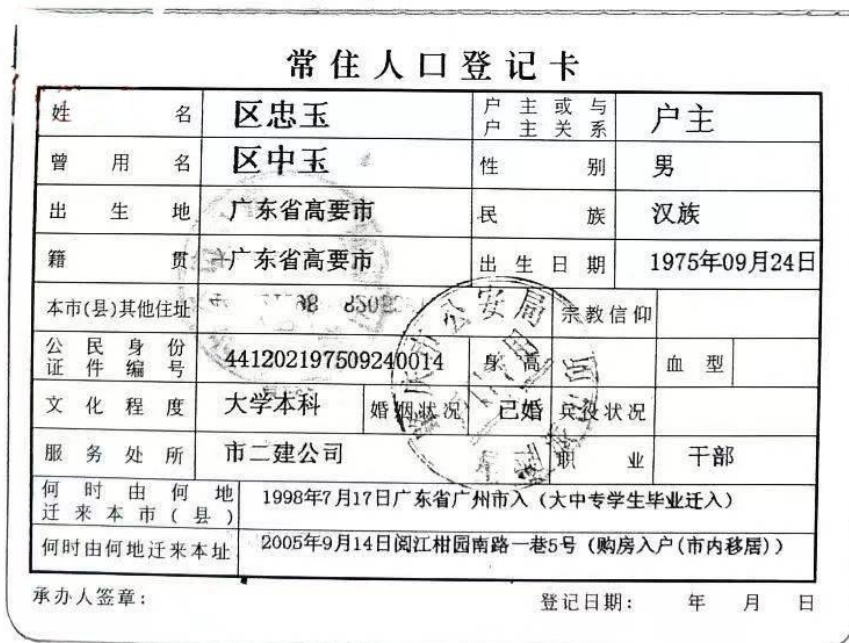 常住人口登记卡
姓名 区忠玉 户主或与户主关系 户主
曾用名 区中玉 性别 男
出生地 广东省高要市 民族 汉族
籍贯 广东省高要市 出生日期 1975年09月24日
本市(县)其他住址 宗教信仰
公民身份证件编号 441202197509240014 身高 血型
文化程度 大学本科 婚姻状况 已婚 兵役状况
服务处所 市二建公司 职业 干部
何时由何地迁来本市(县) 1998年7月17日广东省广州市入（大中专学生毕业迁入）
何时由何地迁来本址 2005年9月14日阅江柑园南路一巷5号（购房入户(市内移居)）
承办人签章： 登记日期： 年 月 日
公安局